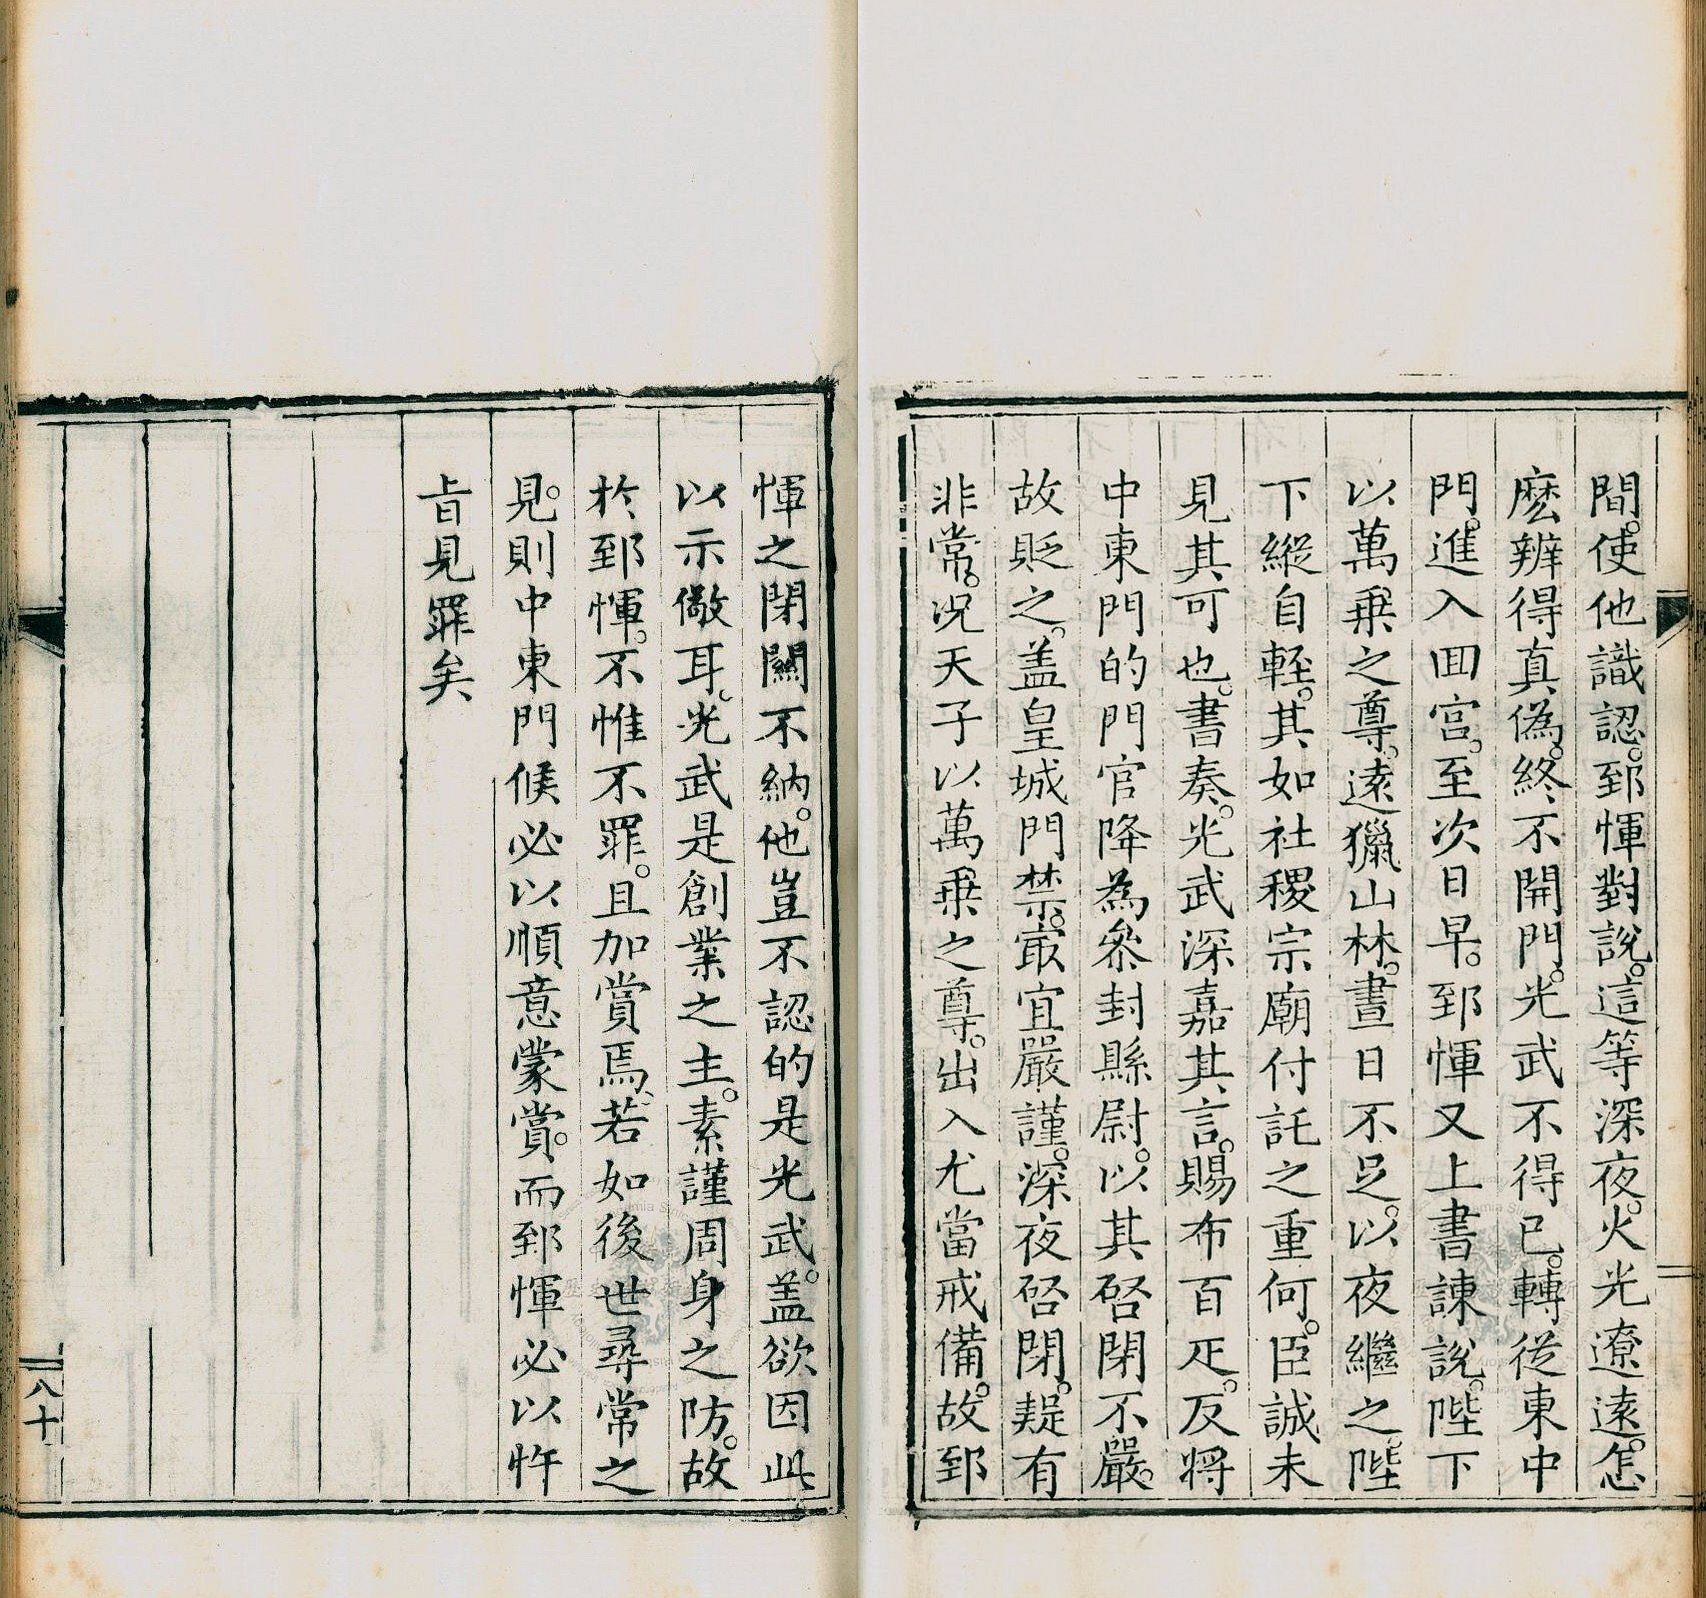 間。使他識認。郅惲對說。這等深夜。火光遼遠。怎
麽辨得真偽。終不開門。光武不得已。轉從東中
門。進入回宮。至次日早。郅惲又上書諫說。陛下
以萬乗之尊。遠獵山林。晝日不足。以夜繼之。陛
下縱自輕。其如社稷宗廟付託之重何。臣誠未
見其可也。書奏。光武深嘉其言。賜布百疋。反將
中東門的門官降為叅封縣尉。以其啓閉不嚴。
故貶之。盖皇城門禁。㝡宜嚴謹。深夜啓閉。疑有
非常。况天子以萬乗之尊。出入尤當戒備。故郅
惲之閉關不納。他豈不認的是光武。盖欲因此
以示儆耳。光武是創業之主。素謹周身之防。故
於郅惲。不惟不罪。且加賞焉。若如後世尋常之
見。則中東門候必以順意蒙賞。而郅惲必以忤
旨見罪矣
八十